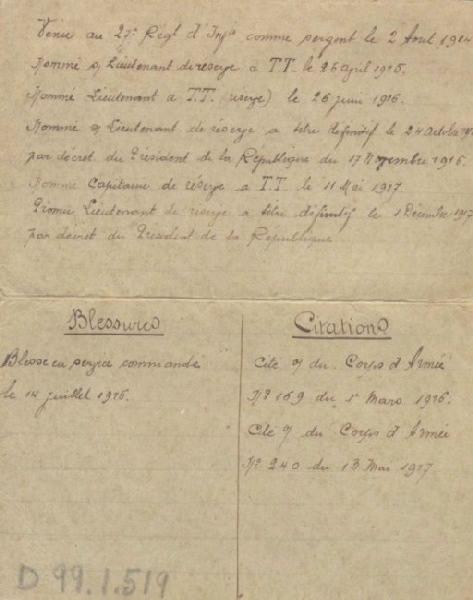 Venu au 27e Régt d'Infie comme sergent le 2 Aout 1914
Nommé s/ Lieutenant de reserve a T.T. le 26 april 1915.
Nommé Lieutenant a T.T. (reserve) le 26 juin 1916.
Nommé s/ Lieutenant de réserve a titre definitif le 24 octobre
par décret du Président de la République du 17 Novembre 1916.
Nommé Capitaine de réserve a T.T. le 11 Mai 1917
Promu Lieutenant de réserve a titre définitif le 1 Décembre 1917
par décret du President de la République
Blessures
Blesse en service commandé
le 14 juillet 1916.
Citations
Cité a du Corps d'Armée
No 169 du 5 Mars 1916.
Cité a du Corps d'Armée
No 240 du 13 Mai 1917
D 99.1.519